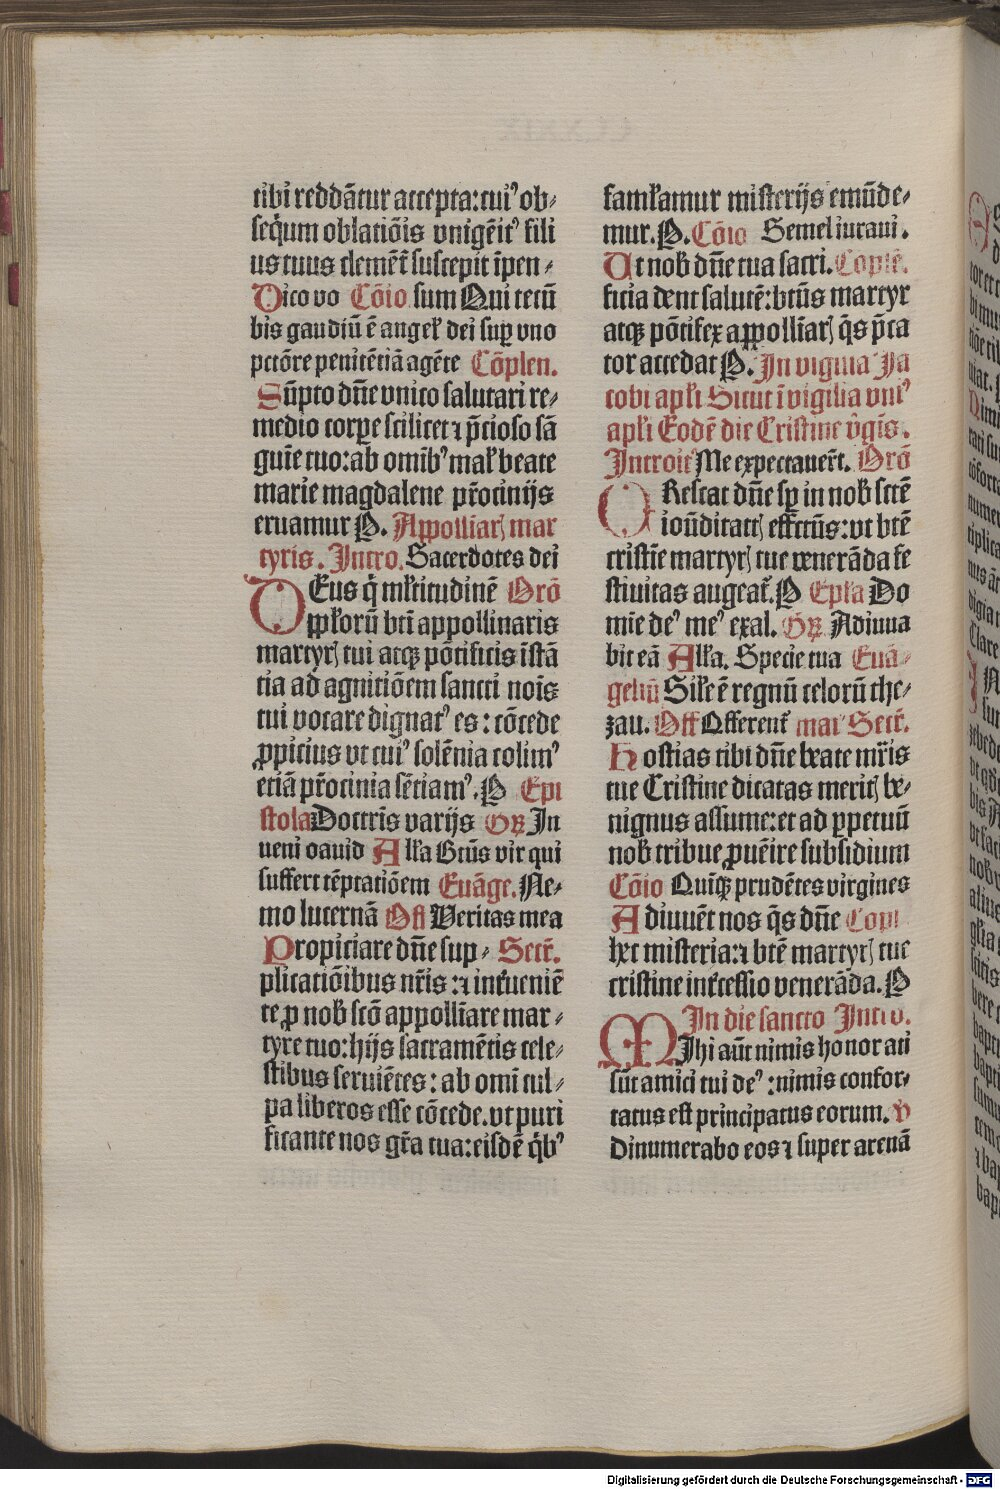 tibi reddãtur accepta: tuiꝰ ob⸗
seq̃um oblatiõis vnigẽitꝰ fili
us tuus clemẽt̃ suscepit ĩpen⸗
Dico vo Cõio sum Qui tecũ
bis gaudiũ ẽ angeł dei suꝑ vno
pctõre penitẽtiã agẽte Cõplen.
Sũpto dñe vnico salutari re⸗
medio corpꝛe scilicet ⁊ p̃cioso sã
guĩe tuo: ab omĩbꝰ mał beate
marie magdalene pr̃ocinijs
eruamur P. Appolliarꝭ mar
tyris. Intro. Sacerdotes dei
DEus q̃ młtitudinẽ Orõ
ppłorũ bti appollinaris
martyrꝭ tui atqꝫ põtificis ĩstã
tia ad agnitiõem sancti nois̃
tui vocare dignatꝰ es: cõcede
ꝓpicius vt cuiꝰ solẽnia colimꝰ
etiã pr̃ocinia sẽtiamꝰ. P Epi
stola Doctrĩs varijs Gꝛ̃ In
ueni dauid Alła Btũs vir qui
suffert tẽptatiõem Euãge. Ne⸗
mo lucernã Off Veritas mea
Propiciare dñe sup⸗ Secr̃.
plicatiõibus nr̃is: ⁊ int̃ueniẽ
te ꝓ nob̃ scõ appollĩare mar⸗
tyre tuo: hijs sacramẽtis cele⸗
stibus seruiẽtes: ab omĩ cul⸗
pa liberos esse cõcede. vt puri
ficante nos gr̃a tua: eisdẽ q̃bꝰ
famłamur misterijs emũde⸗
mur. P. Cõio Semel iuraui.
Ut nob̃ dñe tua sacri. Coplẽ.
ficia dent salutẽ: btũs martyr
atqꝫ põtifex appollĩarꝭ q̃s p̃ca
tor accedat P. In vigilia Ja
cobi apłi Sicut ĩ vigilia vniꝰ
apłi Eodẽ die Cristine v̂gĩs.
Introitꝰ Me expectauer̃t. Orõ
CRescat dñe sꝑ in nob̃ sctẽ
ioũditatꝭ effectũs: vt btẽ
cristĩe martyrꝭ tue venerãda fe
stiuitas augeat̃. P Epła Do
mĩe deꝰ meꝰ exal. Gꝛ̃ Adiuua
bit eã Alła. Specie tua Euã⸗
geliũ Sile ẽ regnũ celorũ the⸗
zau. Off Offerent̃ mai Secr̃.
Hostias tibi dñe beate mr̃is
tue Cristine dicatas meritꝭ be⸗
nignus assume: et ad ꝑpetuũ
nob̃ tribue ꝓuẽire subsidium
Cõio Quĩqꝫ prudẽtes virgines
Adiuuẽt nos q̃s dñe Copł
hec misteria: ⁊ btẽ martyrꝭ tue
cristine int̃cessio venerãda. P
In die sancto Intro.
MIhi aũt nimis honorati
sũt amici tui deꝰ: nimis confor⸗
tatus est principatus eorum. V
Dinumerabo eos ⁊ super arenã
Digitalisierung gefördert durch die Deutsche Forschungsgemeinschaft - DFG